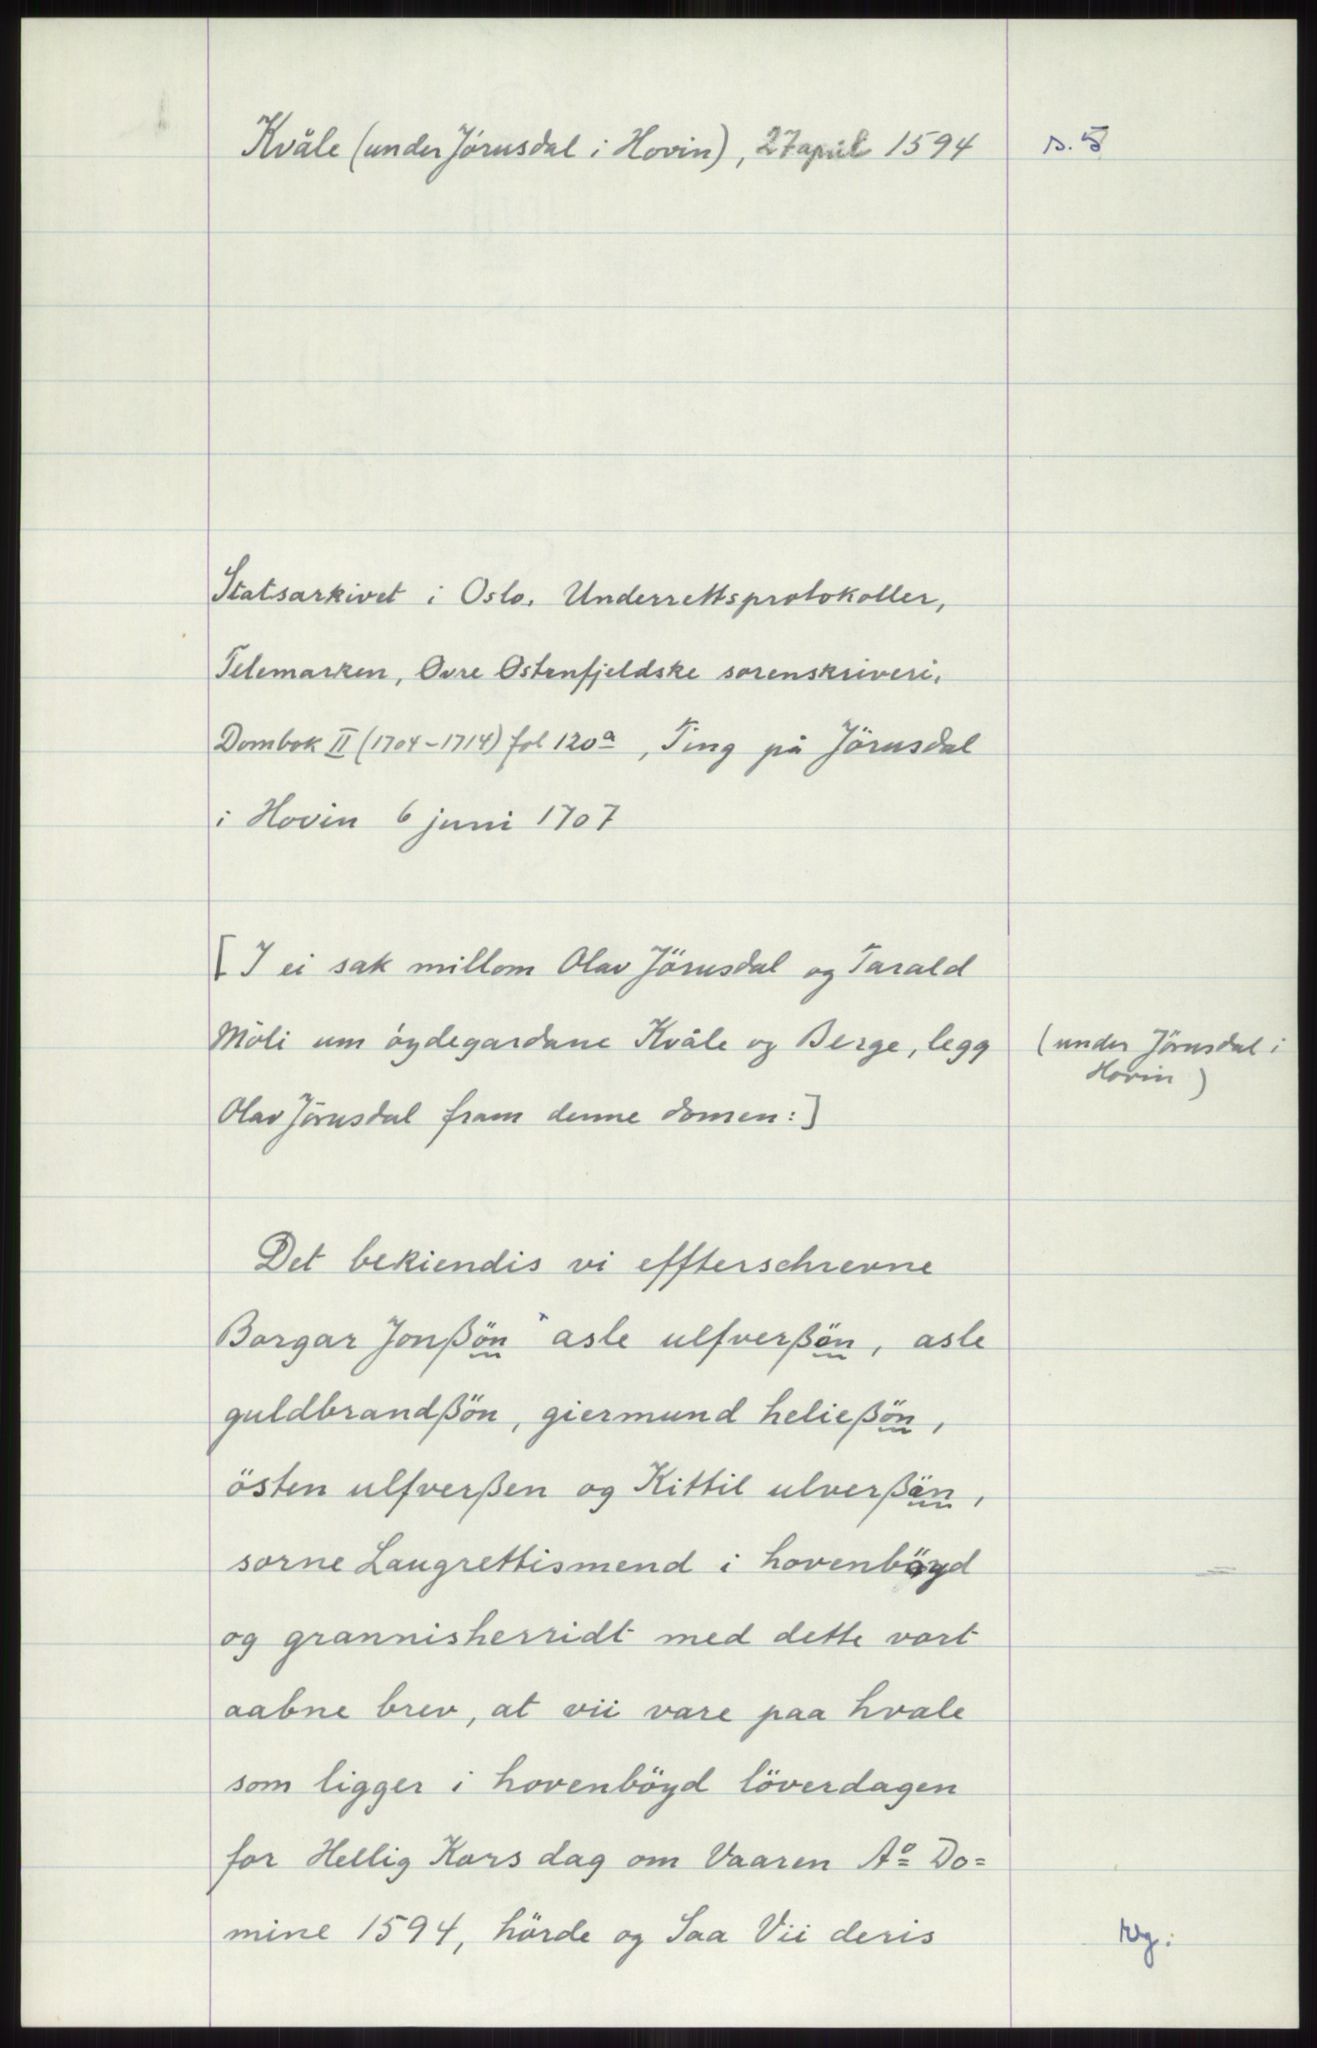 Kvåle (under Jörusdal i Hovin), 27 april 1594
s. 5
Statsarkivet i Oslo. Underrettsprotokoller,
Telemarken, Øvre Østenfjeldske sorenskriveri,
Dombok II (1704-1714) fol 120a, Ting på Jörusdal
i Hovin 6 juni 1707
[I ei sak millom Olav Jörusdal og Tarald
Möli um öydegardane Kvåle og Berge, legg
(under Jörusdal i
Hovin)
Olav Jörusdal fram denne domen:]
Det bekiendis vi effterschrevne
Borgar Jonßön asle ulfverßön, asle
guldbrandßön, giermund heließön,
östen ulfverßen og Kittil ulverßön,
sorne Laugrettismend i hovenböyd
og grannisherridt med dette vort
aabne brev, at vii vare paa hvale
som ligger i hovenböyd löverdagen
for Hellig Kors dag om Vaaren Ao Do=
mine 1594, hörde og Saa Vii deris